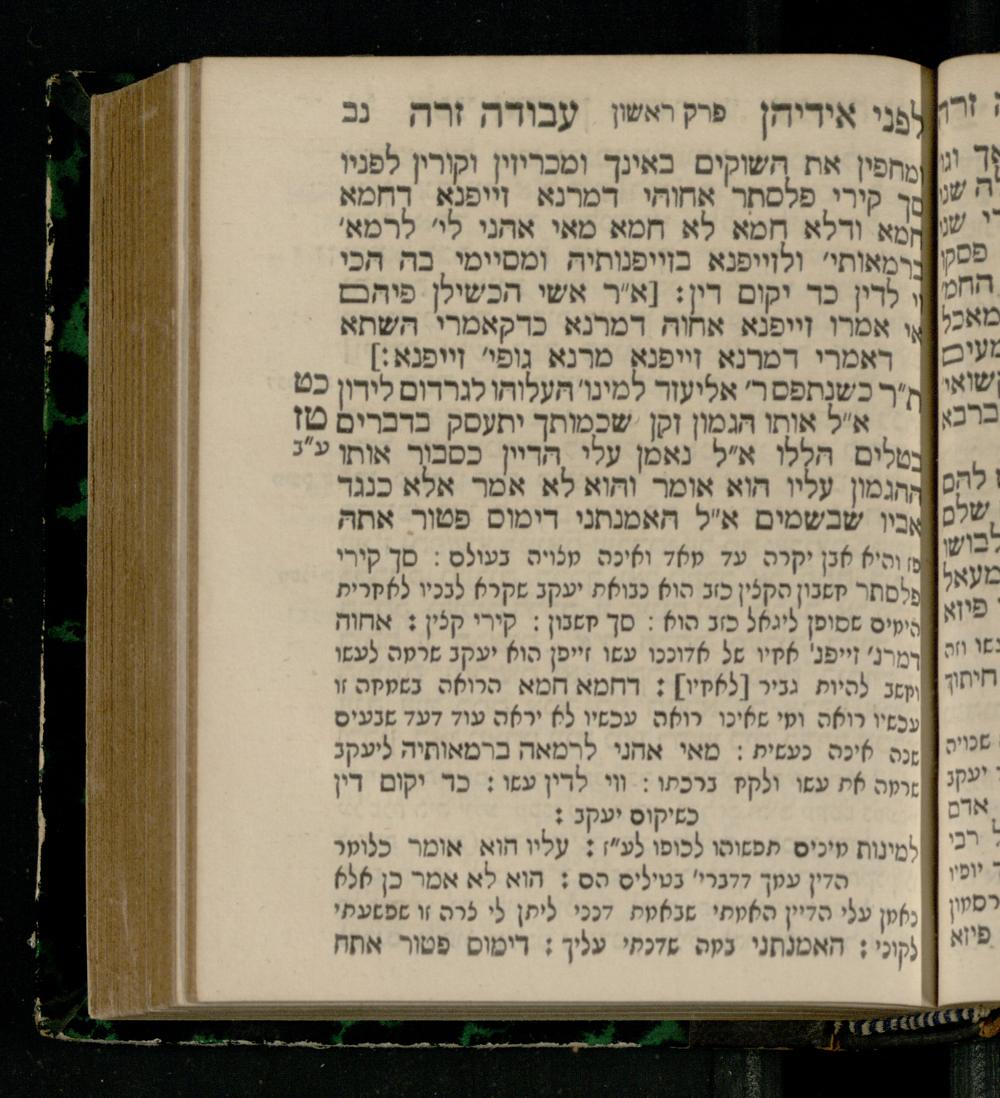 לפני אידיהן פרק ראשון עבודה זרה נב
ומחפין את השוקים באינך ומכריזין וקורין לפניו
סך קירי פלסתר אחוהי דמרנא זייפנא דחמא
חמא ודלא חמא לא חמא מאי אהני לי׳ לרמא׳
ברמאותי׳ ולזייפנא בזייפנותיה ומסיימי בה הכי
וי לדין כד יקום דין: [א״ר אשי הכשילן פיהם
אי אמרו זייפנא אחוה דמרנא כדקאמרי השתא
דאמרי דמרנא זייפנא מרנא גופי׳ זייפנא:]
ת״ר כשנתפס ר׳ אליעזר למינו׳ העלוהו לגרדום לידון כט
א״ל אותו הגמון זקן שכמותך יתעסק בדברים טז
בטלים הללו א״ל נאמן עלי הדיין כסבור אותו ע״ב
ההגמון עליו הוא אומר והוא לא אמר אלא כנגד
אביו שבשמים א״ל האמנתני דימוס פטור אתה
פז והיא אבן יקרה עד מאד ואינה מנויה בעולם : סך קירי
פלסתר חשבון הקלין כזב הוא נבואת יעקב שקרא לבניו לאחרית
הימים שסופן ליגאל כזב הוא : סך חשבון : קירי קלין : אחוה
דמרנ׳ זייפנ׳ אחיו של אדוננו עשו זייפן הוא יעקב שרמה לעשו
וחשב להיות גביר [לאחיו] : דחמא חמא הרואה בשמחה זו
עכשיו רואה ומי שאינו רואה עכשיו לא יראה עוד דעד שבעים
שנה אינה נעשית : מאי אהני לרמאה ברמאותיה ליעקב
שרמה את עשו ולקח ברכתו : ווי לדין עשו : כד יקום דין
כשיקום יעקב :
למינות מינים תפשוהו לכופו לע״ז : עליו הוא אומר כלומר
הדין עמך דדברי׳ בטילים הם : הוא לא אמר כן אלא
נאמן עלי הדיין האמתי שבאמת דנני ליתן לי צרה זו שפשעתי
לקוני : האמנתני במה שדנתי עליך : דימוס פטור אתה